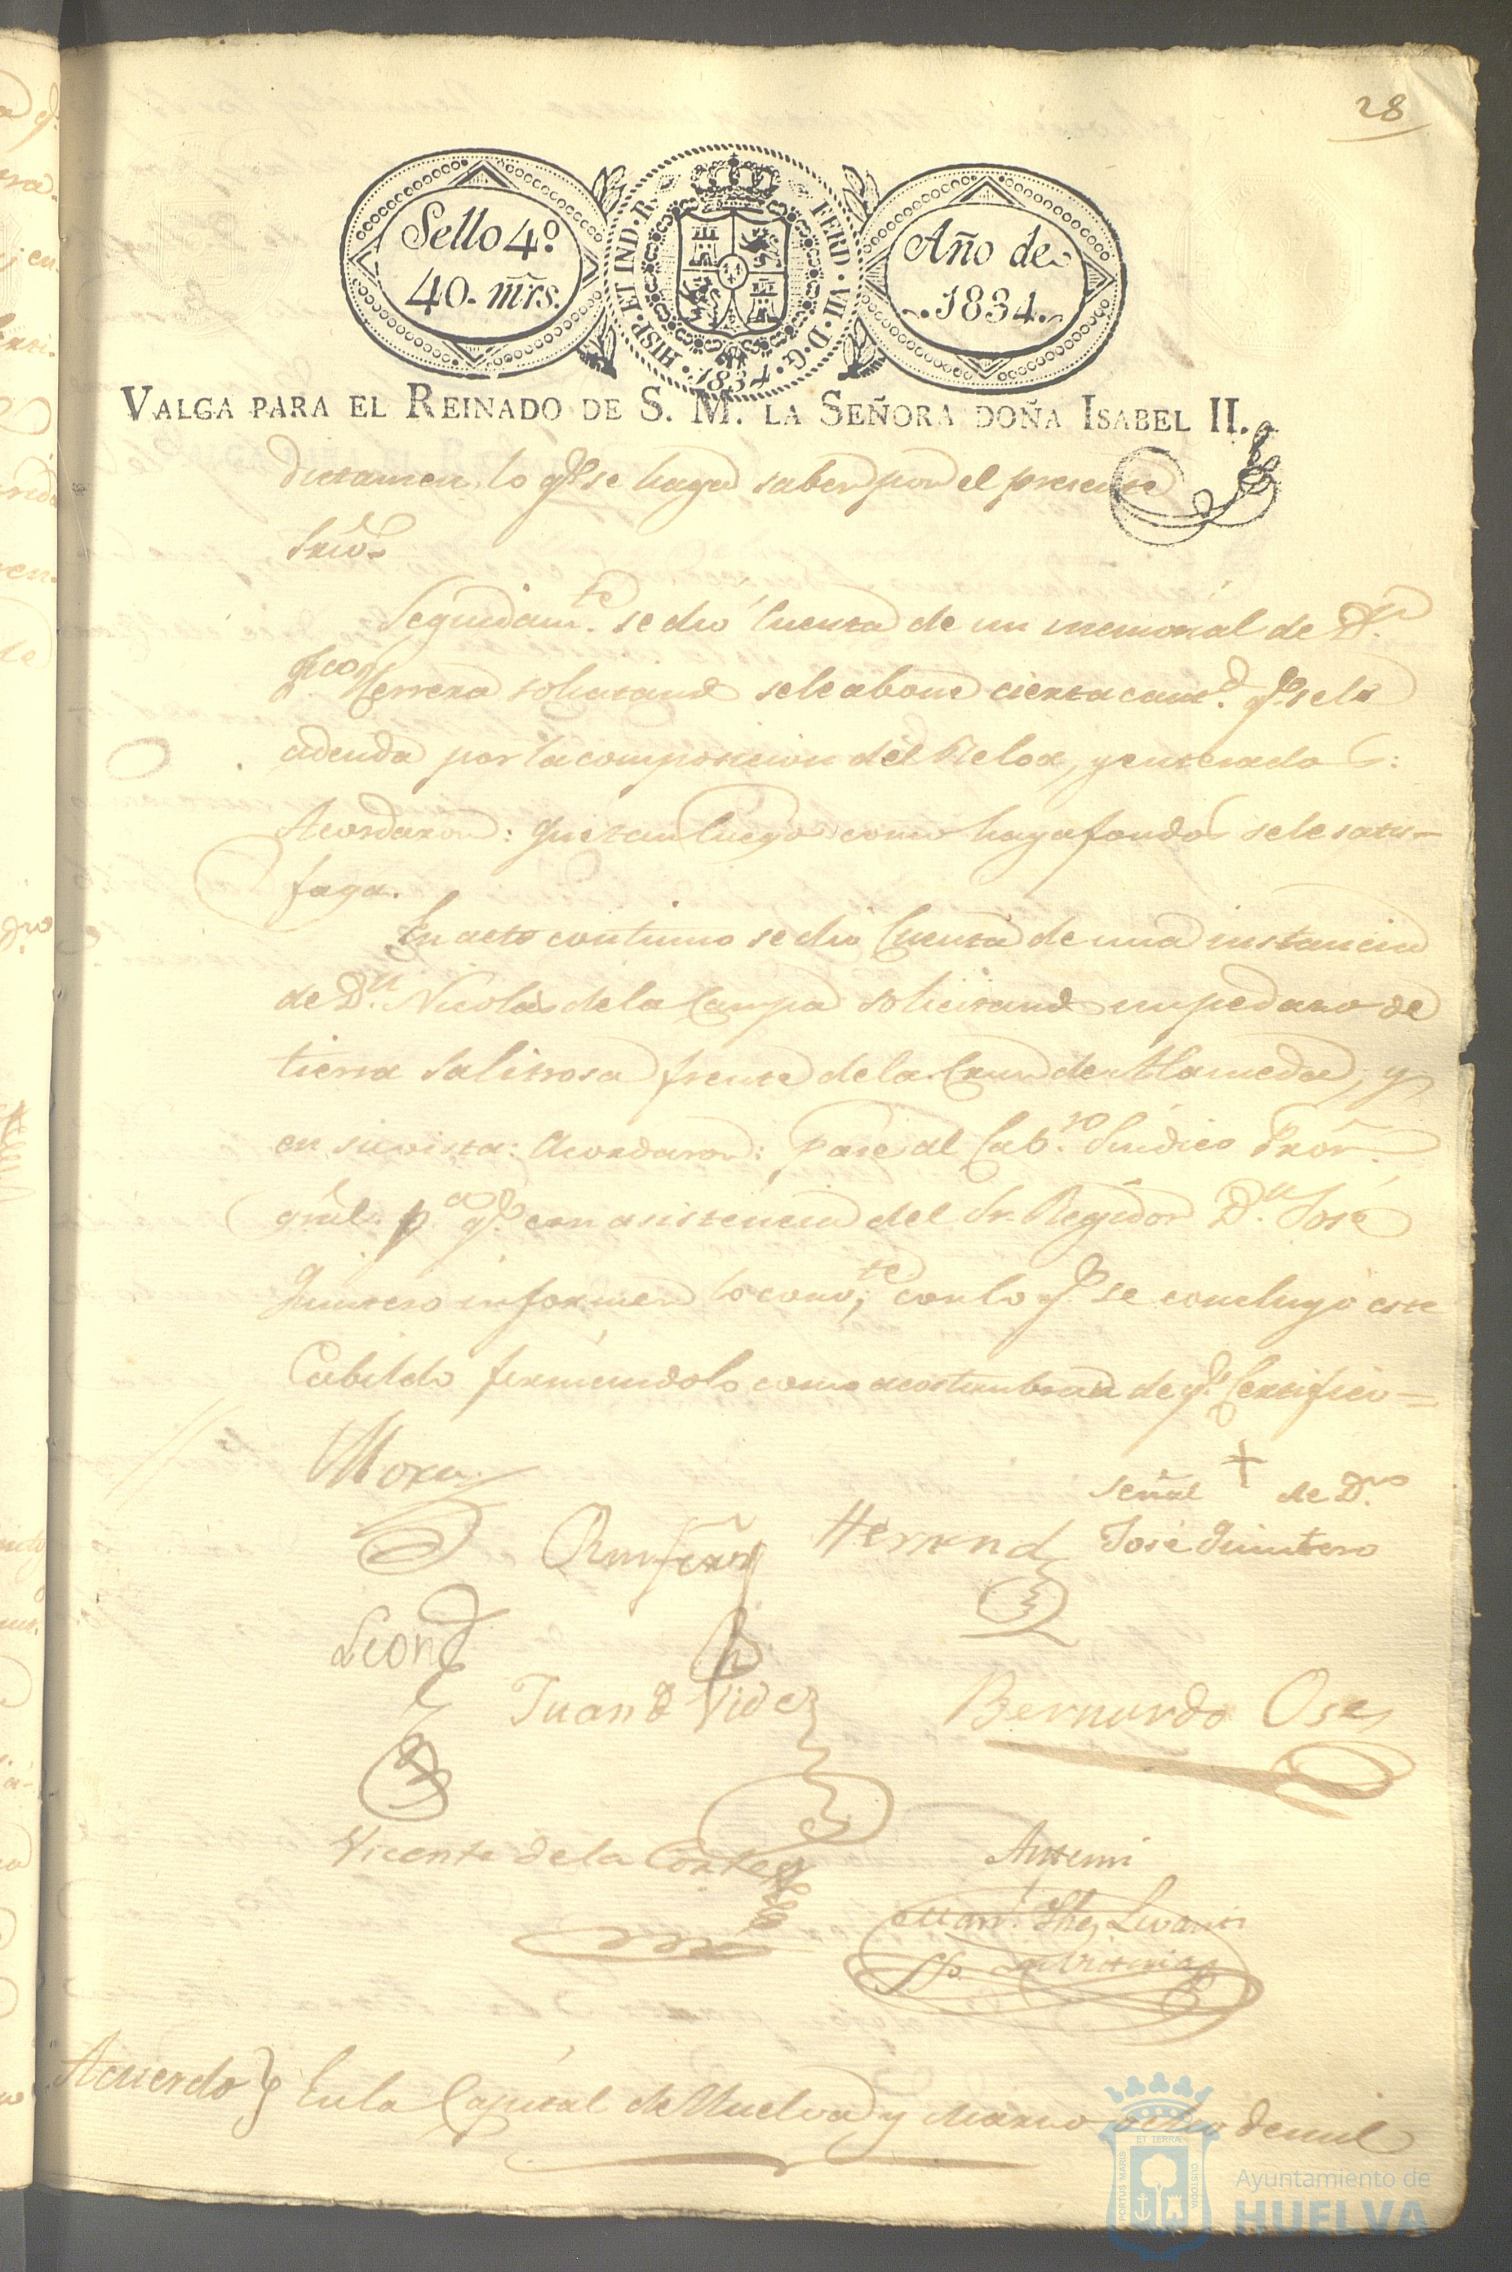 28
Sello 4º
40. mrs.
HISP. ET IND. R. FERD. VII. D. G. 1834.
Año de
1834.
VALGA PARA EL REINADO DE S. M. LA SEÑORA DOÑA ISABEL II.
dictamen, lo qe. se haga saber por el presente
Srio.
Seguidamte. se dió cuenta de un memorial de Dn.
Fco. Herrera solicitand se le abone cierta cantd. qe. se le
adeuda por la composicion del Relox, y enterado S:
Acordaron: Que tan luego como haya fondos se le satis=
faga.
En acto continuo se dio Cuenta de una instancia
de Dn. Nicolas de la Campa solicitand un pedazo de
tierra Salitrosa frente de la Cruz de Alameda, y
en su vista: Acordaron: pase al Cabro. Sindico Pror.
gral. pa. qe. con asistencia del Sr. Regidor Dn. José
Quintero informen lo convte; con lo qe. se concluyó este
Cabildo firmandolo como acostumbran de qe. Certifico=
Mora
Herrnd
señal + de Dn.
José Quintero
Leon
Juan de Vides
Bernardo Ose
Vicente de la Corte
Antemi
Manl. Shez
de Victoria
Acuerdo } En la Capital de Huelva y Marzo ocho de mil
PORTUS MARIS ET TERRAE CUSTODIA
Ayuntamiento de
HUELVA